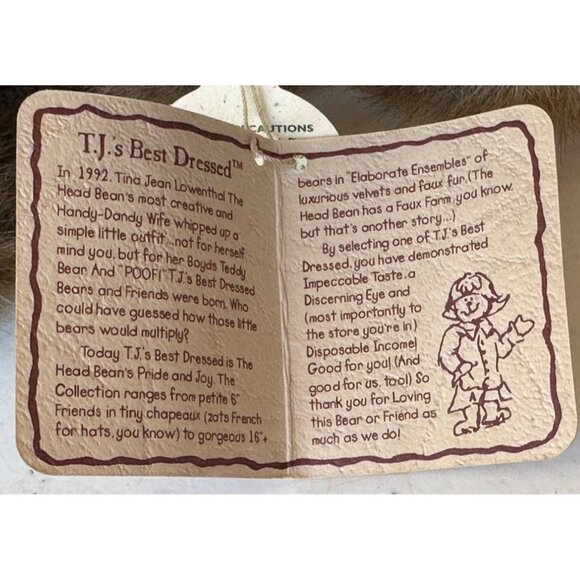 CAUTIONS
T.J.'s Best Dressed™
In 1992, Tina Jean Lowenthal The
Head Bean's most creative and
Handy-Dandy Wife whipped up a
simple little outfit...not for herself
mind you, but for her Boyds Teddy
Bear. And "POOF!" T.J.'s Best Dressed
Bears and Friends were born. Who
could have guessed how those little
bears would multiply?
Today T.J.'s Best Dressed is The
Head Bean's Pride and Joy. The
Collection ranges from petite 6"
Friends in tiny chapeaux (zats French
for hats, you know) to gorgeous 16"+
bears in "Elaborate Ensembles" of
luxurious velvets and faux fur. (The
Head Bean has a Faux Farm, you know,
but that's another story...)
By selecting one of T.J.'s Best
Dressed, you have demonstrated
Impeccable Taste, a
Discerning Eye and
(most importantly to
the store you're in)
Disposable Income!
Good for you! (And
good for us, too!) So
thank you for Loving
this Bear or Friend as
much as we do!